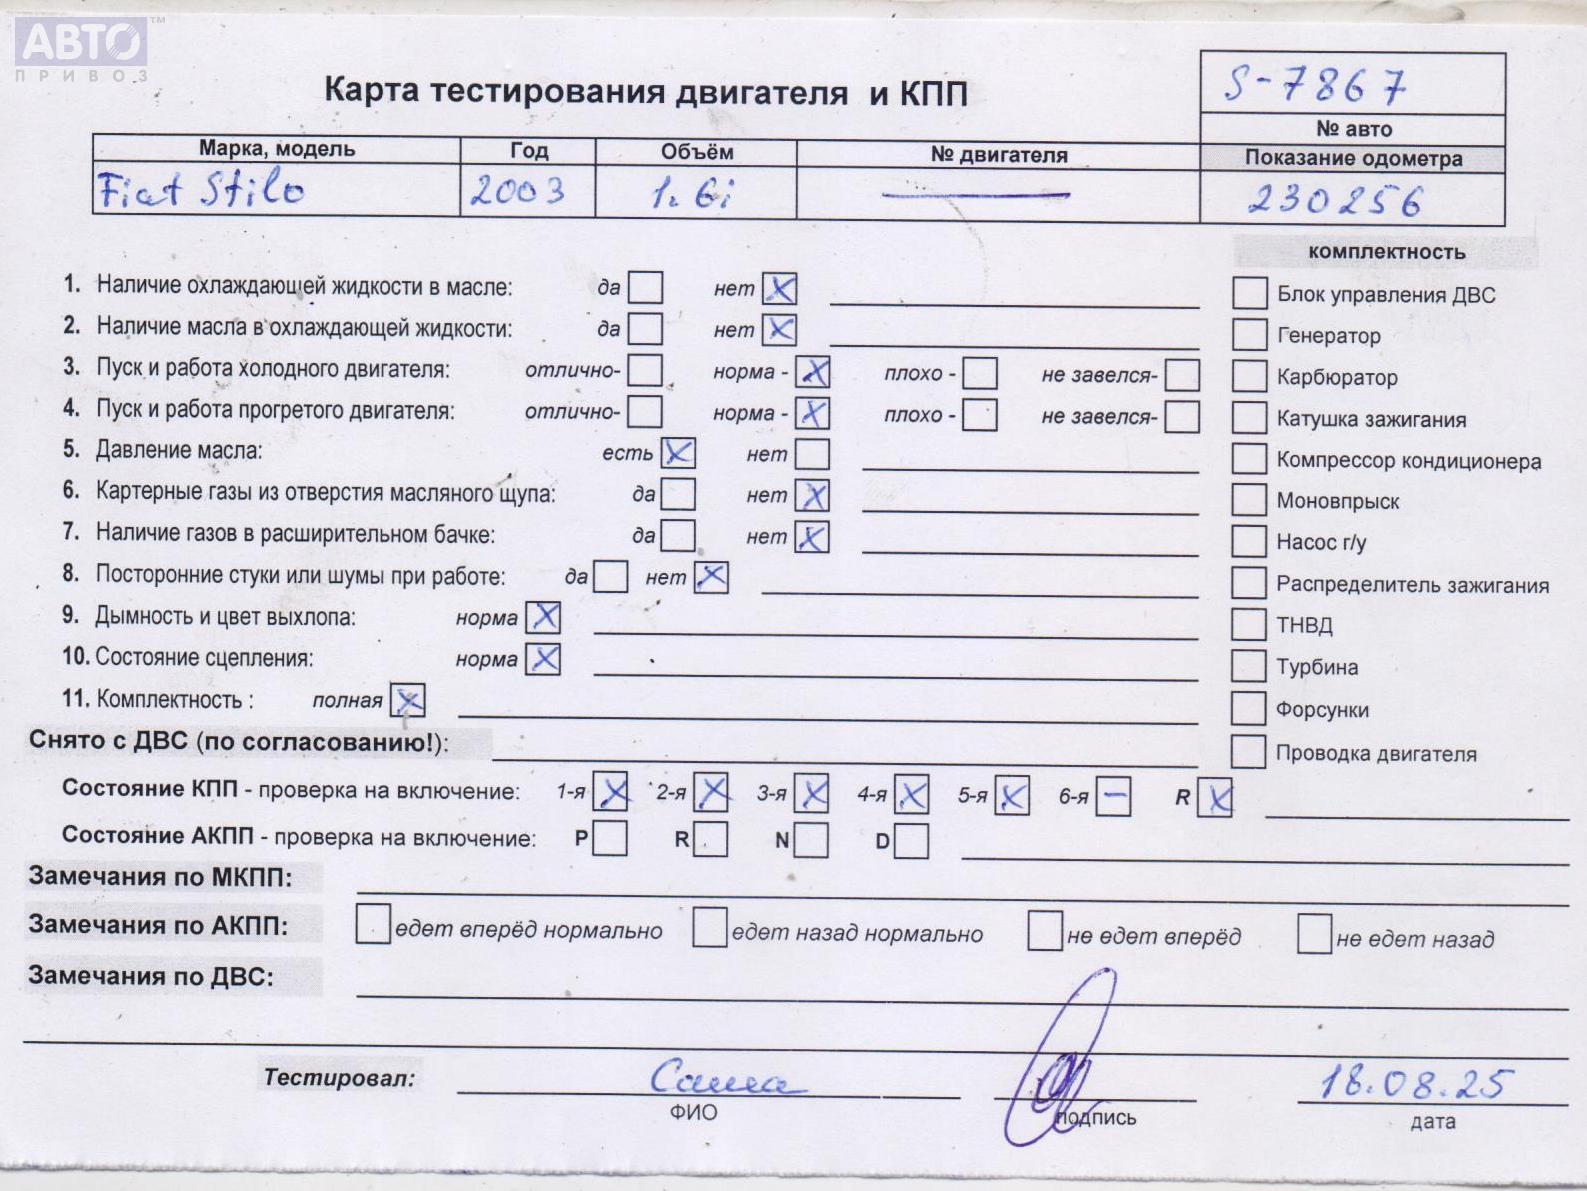 АВТО™
ПРИВОЗ
Карта тестирования двигателя и КПП
S-7867
№ авто
Марка, модель Год Объём № двигателя Показание одометра
Fiat Stilo 2003 1.6i — 230256
комплектность
1. Наличие охлаждающей жидкости в масле: да нет X
2. Наличие масла в охлаждающей жидкости: да нет X
3. Пуск и работа холодного двигателя: отлично- норма - X плохо - не завелся-
4. Пуск и работа прогретого двигателя: отлично- норма - X плохо - не завелся-
5. Давление масла: есть X нет
6. Картерные газы из отверстия масляного щупа: да нет X
7. Наличие газов в расширительном бачке: да нет X
8. Посторонние стуки или шумы при работе: да нет X
9. Дымность и цвет выхлопа: норма X
10. Состояние сцепления: норма X
11. Комплектность : полная X
Блок управления ДВС
Генератор
Карбюратор
Катушка зажигания
Компрессор кондиционера
Моновпрыск
Насос г/у
Распределитель зажигания
ТНВД
Турбина
Форсунки
Проводка двигателя
Снято с ДВС (по согласованию!):
Состояние КПП - проверка на включение: 1-я X 2-я X 3-я X 4-я X 5-я X 6-я — R X
Состояние АКПП - проверка на включение: P R N D
Замечания по МКПП:
Замечания по АКПП: едет вперёд нормально едет назад нормально не едет вперёд не едет назад
Замечания по ДВС:
Тестировал: Саша 18.08.25
ФИО подпись дата